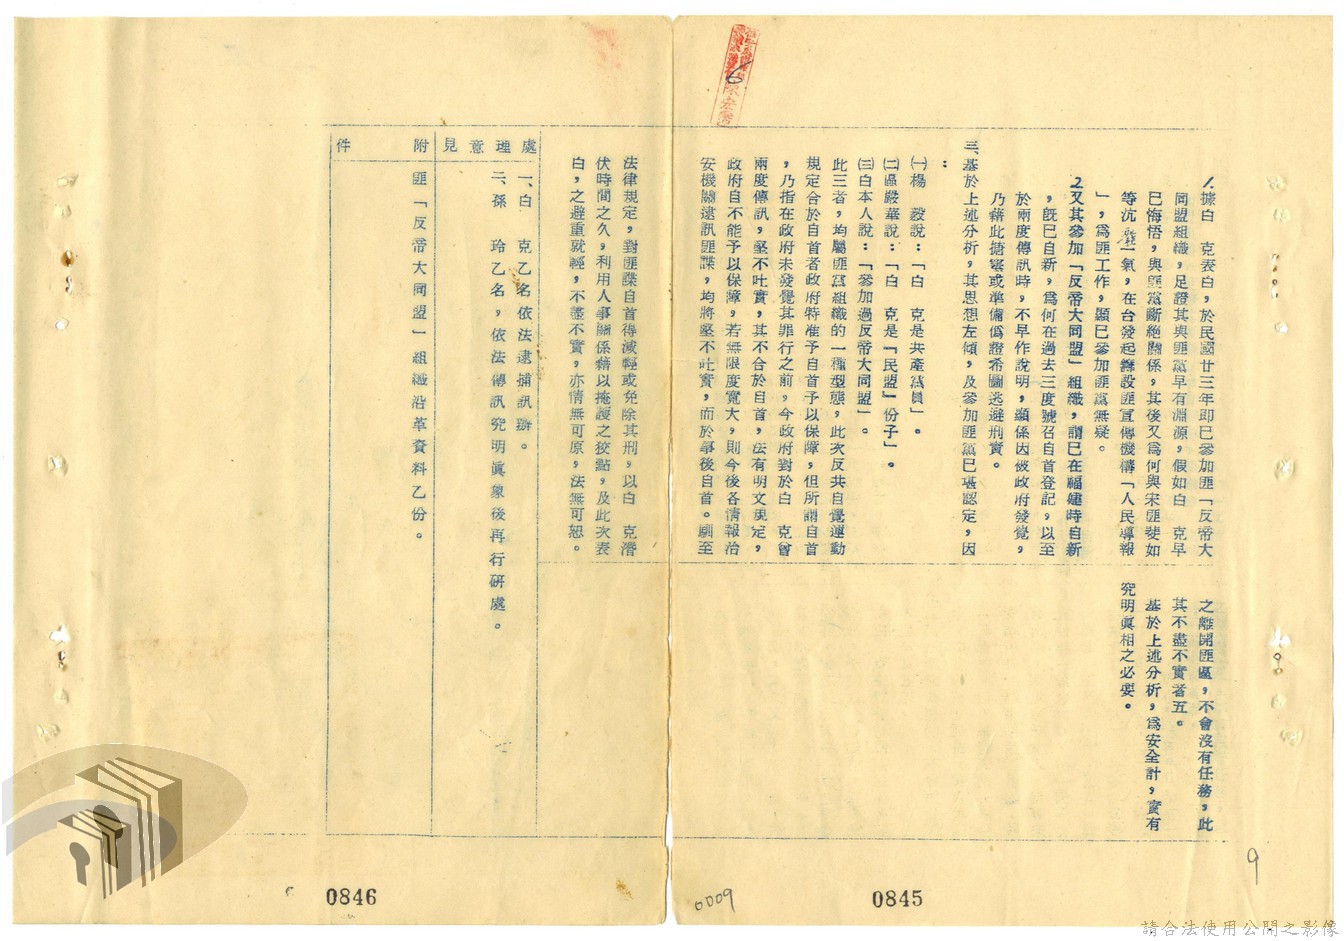 ⒈據白　克表白，於民國廿三年即已參加匪「反帝大
同盟組織，足證其與匪黨早有淵源，假如白　克早
已悔悟，與匪黨斷絕關係，其後又爲何與宋匪斐如
等沆瀣一氣，在台發起籌設匪宣傳機構「人民導報
」，爲匪工作，顯已參加匪黨無疑。
⒉又其參加「反帝大同盟」組織，謂已在福建時自新
，旣已自新，爲何在過去三度號召自首登記，以至
於兩度傳訊時，不早作說明，顯係因被政府發覺，
乃藉此搪塞或準備僞證希圖逃避刑責。
三、基於上述分析，其思想左傾，及參加匪黨已堪認定，因
：
㈠楊　毅說：「白　克是共產黨員」。
㈡區嚴華說：「白　克是『民盟』份子」。
㈢白本人說：「參加過反帝大同盟」
此三者，均屬匪黨組織的一種型態，此次反共自覺運動
規定合於自首者政府特准予自首予以保障，但所謂自首
，乃指在政府未發覺其罪行之前，今政府對於白　克曾
兩度傳訊，堅不吐實，其不合於自首，法有明文規定，
政府自不能予以保障，若無限度寬大，則今後各情報治
安機關逮訊匪諜，均將堅不吐實，而於事後自首。關至
法律規定，對匪諜自首得減輕或免除其刑，以白　克潛
伏時間之久，利用人事關係藉以掩護之狡點，及此次表
白，之避重就輕，不盡不實，亦情無可原，法無可恕。
之離開匪區，不會沒有任務，此
其不盡不實者五。
基於上述分析，爲安全計，實有
究明眞相之必要。
處理意見
一、白　克乙名依法逮捕訊辦。
二、孫　玲乙名，依法傳訊究明眞象後再行研處。
附件
匪「反帝大同盟」組織沿革資料乙份。
6
9
0845
0009
0846
請合法使用公開之影像